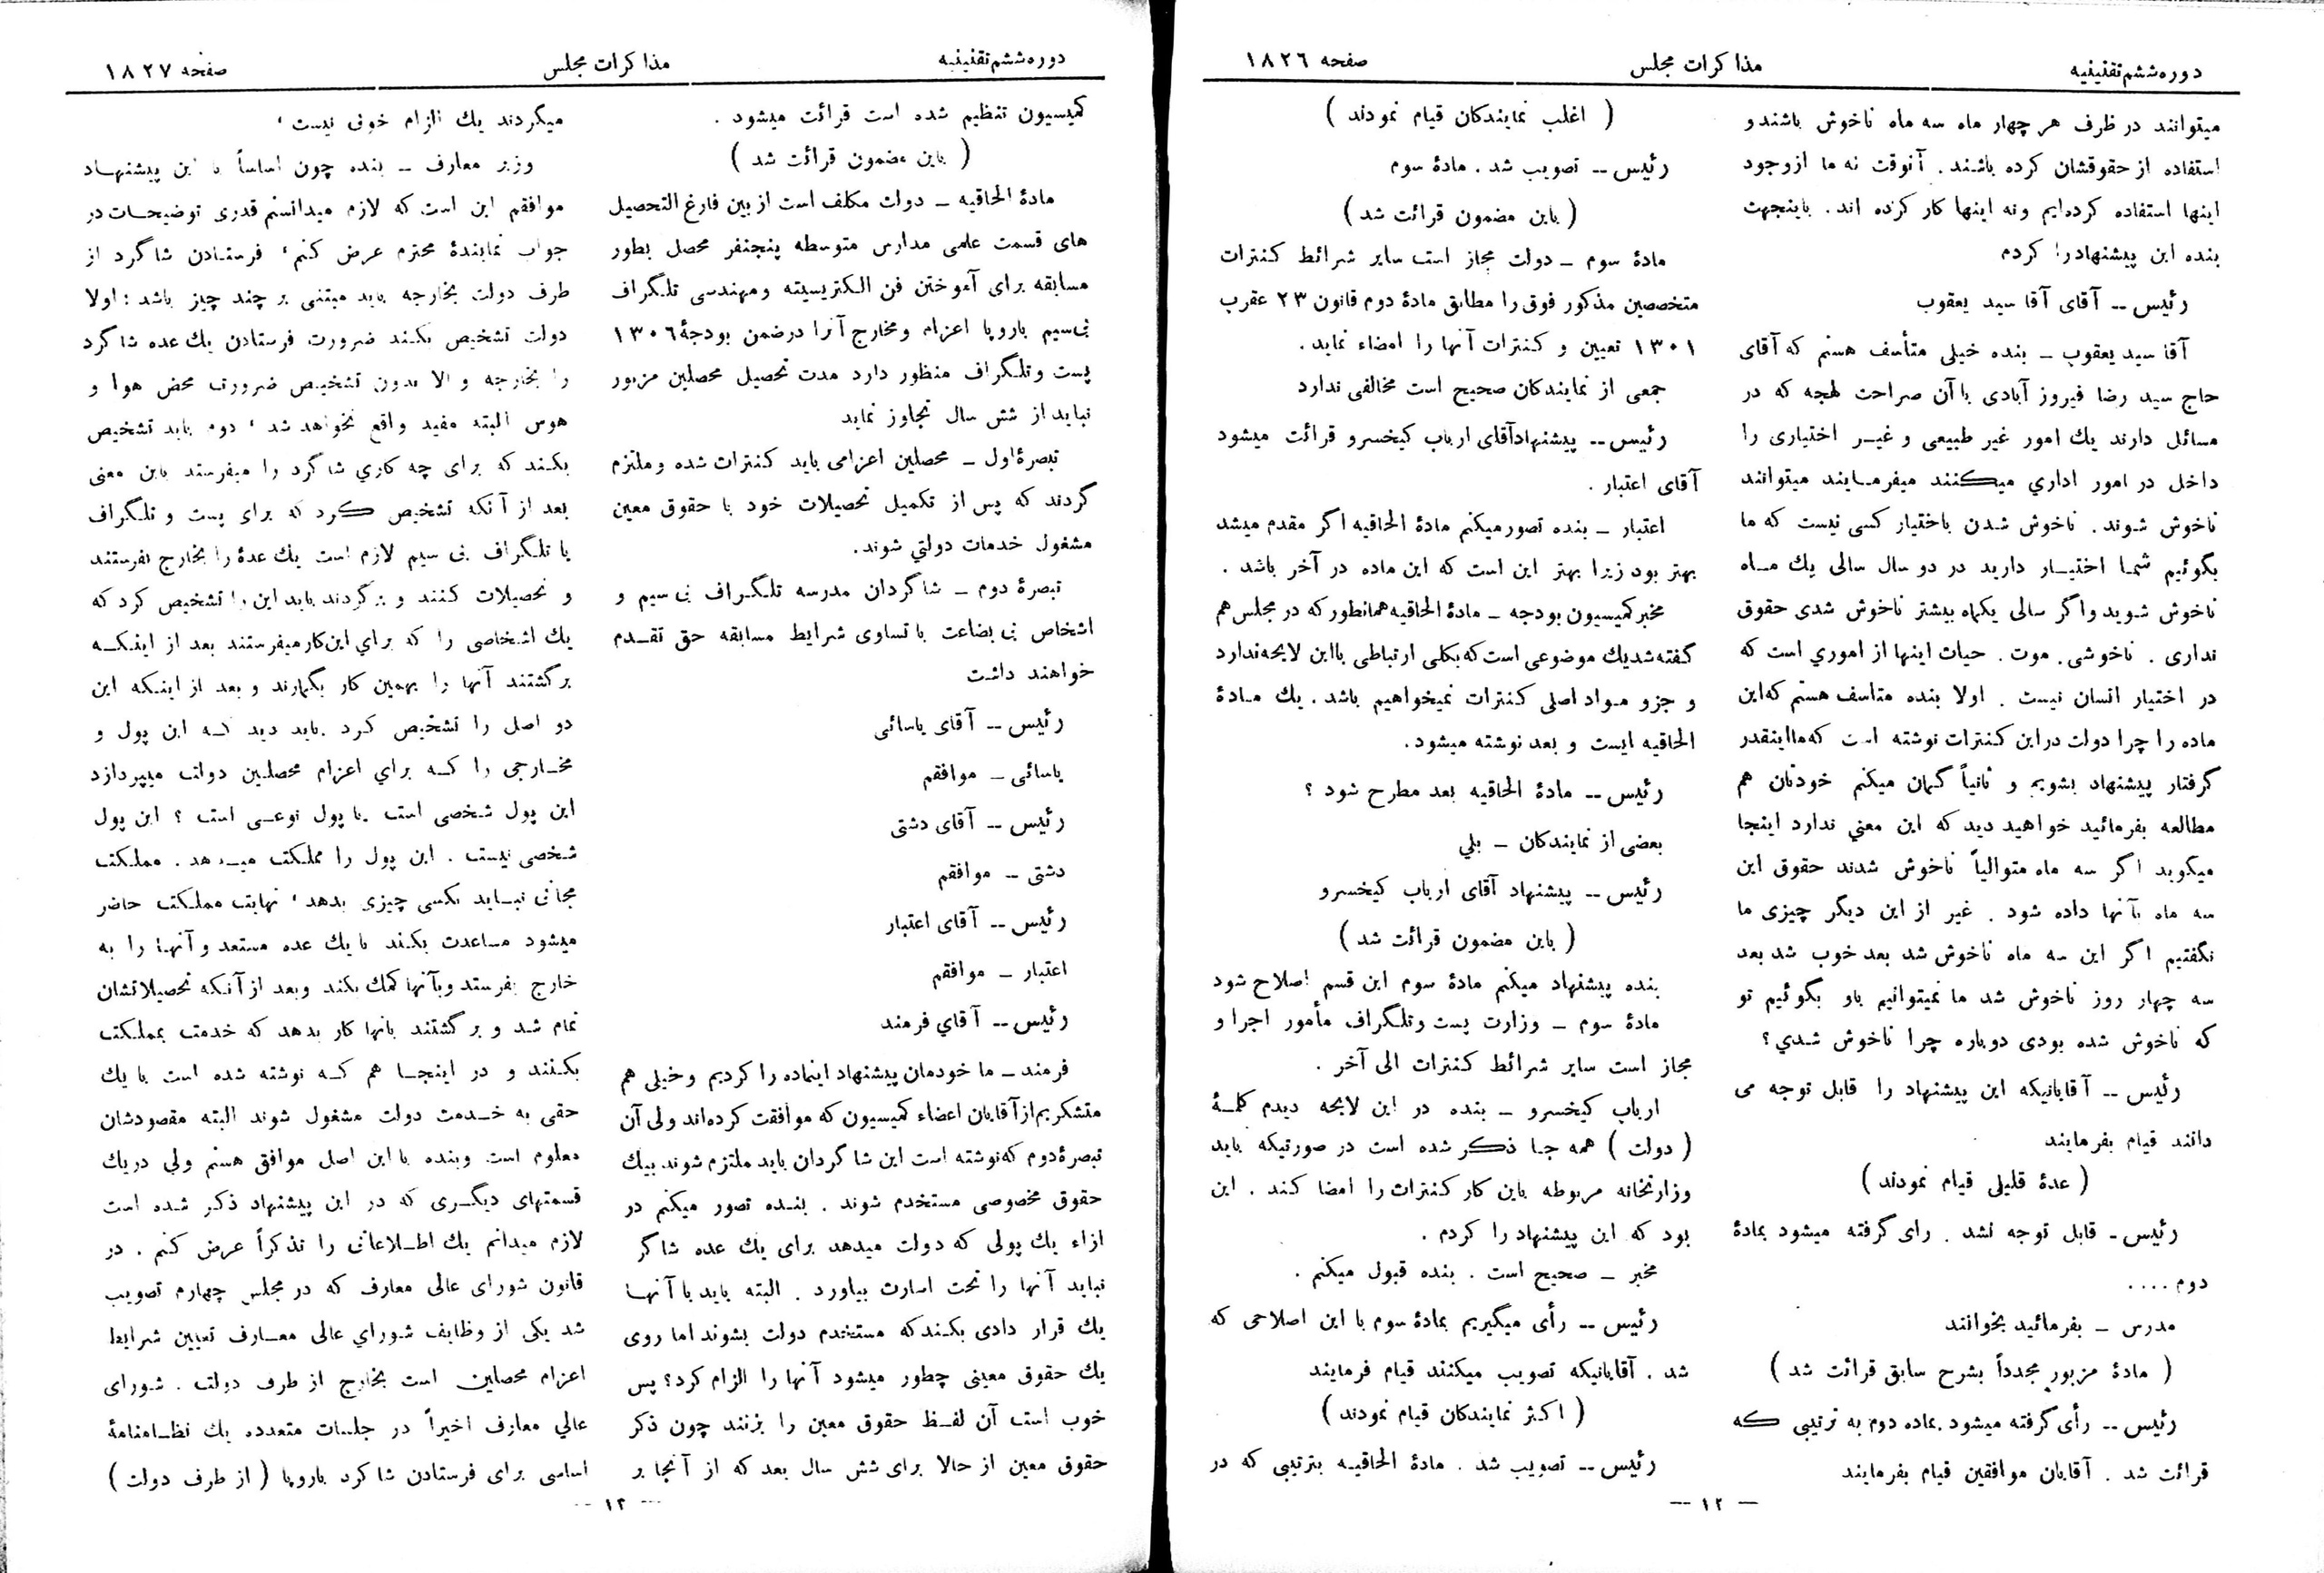 دوره ششم تقنینیه
مذاکرات مجلس
صفحه ۱۸۲۶
میتوانند در ظرف هر چهار ماه سه ماه ناخوش باشند و
استفاده از حقوقشان کرده باشند . آنوقت نه ما از وجود
اینها استفاده کرده‌ایم ونه اینها کار کرده اند . باینجهت
بنده این پیشنهادرا کردم
رئیس -- آقای آقا سید یعقوب
آقا سید یعقوب - بنده خیلی متأسف هستم که آقای
حاج سید رضا فیروز آبادی با آن صراحت لهجه که در
مسائل دارند یك امور غیر طبیعی و غیر اختیاری را
داخل در امور اداري میکنند میفرمایند میتوانند
ناخوش شوند . ناخوش شدن باختیار کسی نیست که ما
بگوئیم شما اختیار دارید در دو سال سالی یك ماه
ناخوش شوید واگر سالی یکماه بیشتر ناخوش شدی حقوق
نداری . ناخوشی . موت . حیات اینها از اموري است که
در اختیار انسان نیست . اولا بنده متاسف هستم که این
ماده را چرا دولت در این کنترات نوشته است که ما اینقدر
گرفتار پیشنهاد بشویم و ثانیاً گمان میکنم خودتان هم
مطالعه بفرمائید خواهید دید که این معنی ندارد اینجا
میگوید اگر سه ماه متوالیاً ناخوش شدند حقوق این
سه ماه بآنها داده شود . غیر از این دیگر چیزی ما
نگفتیم اگر این سه ماه ناخوش شد بعد خوب شد بعد
سه چهار روز ناخوش شد ما نمیتوانیم باو بگوئیم تو
که ناخوش شده بودی دوباره چرا ناخوش شدي ؟
رئیس -- آقایانیکه این پیشنهاد را قابل توجه می
دانند قیام بفرمایند
( عدهٔ قلیلی قیام نمودند )
رئیس - قابل توجه نشد . رای گرفته میشود بمادهٔ
دوم ....
مدرس - بفرمائید بخوانند
( مادهٔ مزبور مجدداً بشرح سابق قرائت شد )
رئیس -- رأی گرفته میشود بماده دوم به ترتیبی که
قرائت شد . آقایان موافقین قیام بفرمایند
( اغلب نمایندکان قیام نمودند )
رئیس -- تصویب شد . مادهٔ سوم
( باین مضمون قرائت شد )
مادهٔ سوم - دولت مجاز است سایر شرائط کنترات
متخصصین مذکور فوق را مطابق مادهٔ دوم قانون ۲۳ عقرب
۱۳۰۱ تعیین و کنترات آنها را امضاء نماید .
جمعی از نمایندکان صحیح است مخالفی ندارد
رئیس -- پیشنهاد آقای ارباب کیخسرو قرائت میشود
آقای اعتبار .
اعتبار - بنده تصور میکنم مادهٔ الحاقیه اگر مقدم میشد
بهتر بود زیرا بهتر این است که این ماده در آخر باشد .
مخبر کمیسیون بودجه - مادهٔ الحاقیه همانطور که در مجلس هم
گفته شد یك موضوعی است که بکلی ارتباطی با این لایحه ندارد
و جزو مواد اصلی کنترات نمیخواهیم باشد . یك مادهٔ
الحاقیه ایست و بعد نوشته میشود .
رئیس -- مادهٔ الحاقیه بعد مطرح شود ؟
بعضی از نمایندکان - بلي
رئیس -- پیشنهاد آقای ارباب کیخسرو
( باین مضمون قرائت شد )
بنده پیشنهاد میکنم مادهٔ سوم این قسم اصلاح شود
مادهٔ سوم - وزارت پست و تلگراف مأمور اجرا و
مجاز است سایر شرائط کنترات الی آخر .
ارباب کیخسرو - بنده در این لایحه دیدم کلمهٔ
( دولت ) همه جا ذکر شده است در صورتیکه باید
وزارتخانه مربوطه باین کار کنترات را امضا کند . این
بود که این پیشنهاد را کردم .
مخبر - صحیح است . بنده قبول میکنم .
رئیس -- رأی میگیریم بمادهٔ سوم با این اصلاحی که
شد . آقایانیکه تصویب میکنند قیام فرمایند
( اکثر نمایندکان قیام نمودند )
رئیس -- تصویب شد . مادهٔ الحاقیه بترتیبی که در
— ۱۲ —
دوره ششم تقنینیه
مذاکرات مجلس
صفحه ۱۸۲۷
کمیسیون تنظیم شده است قرائت میشود .
( باین مضمون قرائت شد )
مادهٔ الحاقیه - دولت مکلف است از بین فارغ التحصیل
های قسمت علمی مدارس متوسطه پنجنفر محصل بطور
مسابقه برای آموختن فن الکتریسیته ومهندسی تلگراف
بی سیم باروپا اعزام و مخارج آنرا در ضمن بودجهٔ ۱۳۰۶
پست و تلگراف منظور دارد مدت تحصیل محصلین مزبور
نباید از شش سال تجاوز نماید
تبصرهٔ اول - محصلین اعزامی باید کنترات شده و ملتزم
گردند که پس از تکمیل تحصیلات خود با حقوق معین
مشغول خدمات دولتي شوند .
تبصرهٔ دوم - شاگردان مدرسه تلگراف بی سیم و
اشخاص بی بضاعت با تساوی شرایط مسابقه حق تقدم
خواهند داشت
رئیس -- آقای یاسائی
یاسائی - موافقم
رئیس -- آقای دشتی
دشتی - موافقم
رئیس -- آقای اعتبار
اعتبار - موافقم
رئیس -- آقاي فرمند
فرمند - ما خودمان پیشنهاد اینماده را کردیم و خیلی هم
متشکریم از آقایان اعضاء کمیسیون که موافقت کرده‌اند ولی آن
تبصرهٔ دوم که نوشته است این شاگردان باید ملتزم شوند بیك
حقوق مخصوصی مستخدم شوند . بنده تصور میکنم در
ازاء یك پولی که دولت میدهد برای یك عده شاگر
نباید آنها را تحت اسارت بیاورد . البته باید با آنها
یك قرار دادی بکند که مستخدم دولت بشوند اما روی
یك حقوق معینی چطور میشود آنها را الزام کرد ؟ پس
خوب است آن لفظ حقوق معین را بزنند چون ذکر
حقوق معین از حالا برای شش سال بعد که از آنجا بر
میگردند یك الزام خوبی نیست ،
وزیر معارف - بنده چون اساساً با این پیشنهاد
موافقم این است که لازم میدانستم قدری توضیحات در
جواب نمایندهٔ محترم عرض کنم ، فرستادن شاگرد از
طرف دولت بخارجه باید مبتنی بر چند چیز باشد : اولا
دولت تشخیص بکند ضرورت فرستادن یك عده شاگرد
را بخارجه و الا بدون تشخیص ضرورت محض هوا و
هوس البته مفید واقع نخواهد شد ، دوم باید تشخیص
بکند که برای چه کاري شاگرد را میفرستد باین معنی
بعد از آنکه تشخیص کرد که برای پست و تلگراف
یا تلگراف بی سیم لازم است یك عدهٔ را بخارج بفرستند
و تحصیلات کنند و برگردند باید این را تشخیص کرد که
یك اشخاصی را که براي این کار میفرستند بعد از اینکه
برگشتند آنها را بهمین کار بگمارند و بعد از اینکه این
دو اصل را تشخیص کرد باید دید که این پول و
مخارجی را که براي اعزام محصلین دولت میپردازد
این پول شخصی است یا پول نوعی است ؟ این پول
شخصی نیست . این پول را مملکت میدهد . مملکت
مجانی نباید بکسی چیزی بدهد ، نهایت مملکت حاضر
میشود مساعدت بکند با یك عده مستعد و آنها را به
خارج بفرستد و بآنها کمك بکند وبعد از آنکه تحصیلاتشان
تمام شد و برگشتند بانها کار بدهد که خدمت بمملکت
بکنند و در اینجا هم که نوشته شده است با یك
حقی به خدمت دولت مشغول شوند البته مقصودشان
معلوم است وبنده با این اصل موافق هستم ولي در یك
قسمتهای دیگری که در این پیشنهاد ذکر شده است
لازم میدانم یك اطلاعاتی را تذکراً عرض کنم . در
قانون شورای عالی معارف که در مجلس چهارم تصویب
شد یکی از وظایف شوراي عالی معارف تعیین شرایط
اعزام محصلین است بخارج از طرف دولت . شورای
عالي معارف اخیراً در جلسات متعدده یك نظامنامهٔ
اساسی برای فرستادن شاکرد باروپا ( از طرف دولت )
— ۱۳ —